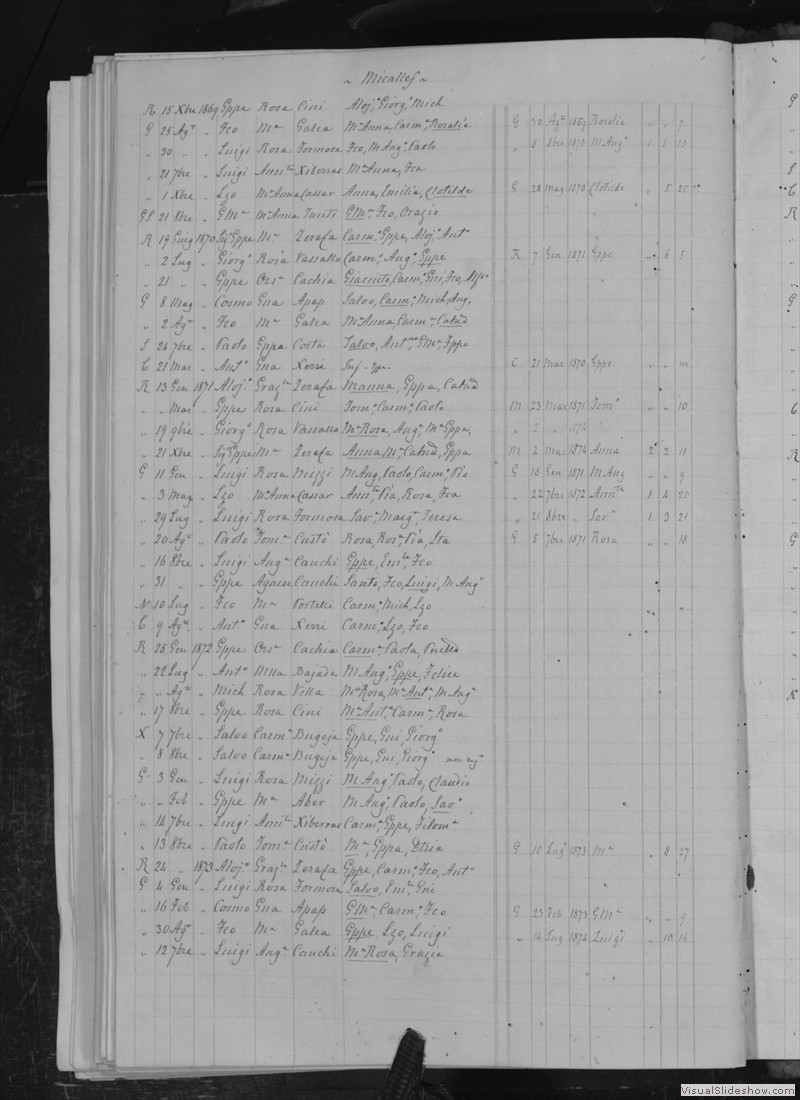 ~ Micallef ~
R 15 Xbre 1869 Gppe Rosa Cini Aloj,ᵃ Giorg,ᵒ Mich
G 25 Agᵗ „ Fco Mᵃ Galea Mᵃ Anna, Carmᵃ, Rosalia G 30 Agᵗᵒ 1869 Rosalia „ „ 7
„ 30 „ „ Luigi Rosa Formosa Fco, M Angᵒ, Paolo „ 8 8bre 1870 M Angᵒ 1 1 10
„ 21 7bre „ Luigi Annᵗᵃ Xiberras Mᵃ Anna, Fca
„ 1 Xbre „ Lzo Mᵃ Anna Cassar Anna, Emilia, Clotilde G 28 Mag 1870 Clotilde „ 5 25
GS 21 8bre „ GMᵃ Mᵃ Anna Tanti GMᵃ, Fco, Orazio
R 19 Giug 1870 Gppe Mᵃ Zerafa Carmᵒ, Gppe, Aloj,ᵒ Antᵒ
„ 2 Lug „ Giorgᵒ Rosa Vassallo Carmᵒ, Angᵒ, Gppe R 7 Gen 1871 Gppe „ 6 5
„ 21 „ „ Gppe Orsᵃ Cachia Giacinto, Carmᵒ, Gni, Fco,
G 8 Mag „ Cosmo Gna Apap Salvo, Carmᵒ, Mich Ang,
„ 2 Agᵗᵒ „ Fco Mᵃ Galea Mᵃ Anna, Carmᵃ, Catnᵃ
S 26 7bre „ Paolo Gppa Costa Salvo, Antⁿᵒ, GMᵃ, Fppo
C 21 Mar „ Antᵒ Gna Xerri Inf - Gppe C 21 Mar 1870 Gppe „ „ m
R 13 Gen 1871 Alojᵒ Grazᵃ Zerafa Manna, Gppa, Catnᵃ
„ „ Mar „ Gppe Rosa Cini Tomᵒ, Carmᵒ, Paolo M 23 Mar 1871 Tomᵒ „ „ 10
„ 19 9bre „ Giorgᵒ Rosa Vassallo Mᵃ Rosa, Angᵃ, Mᵃ Gppa, „ 2 „ 1874
„ 21 Xbre „ Gppe Mᵃ Zerafa Anna, Mᵃ Catnᵃ, Gppa M 2 Mar 1874 Anna 2 2 11
G 11 Gen „ Luigi Rosa Mizzi M Ang, Paolo, Carmᵒ, Pio G 18 Gen 1871 M Ang „ „ 9
„ 3 Mag „ Lzo Mᵃ Anna Cassar Annᵗᵃ, Pia, Rosa, Fca „ 22 7bre 1872 Annᵗᵃ 1 4 20
„ 29 Lug „ Luigi Rosa Formosa Savᵃ, Margᵗ, Teresa „ 21 8bre „ Savᵃ 1 3 21
„ 20 Agᵗᵒ „ Paolo Tomᵃ Custò Rosa, Rosᵃ, Pia, Lta G 5 7bre 1871 Rosa „ „ 18
„ 16 8bre „ Luigi Angᵃ Cauchi Gppe, Emˡᵉ, Fco
„ 31 „ „ Gppe Agnese Cauchi Santo, Fco, Luigi, M Angᵒ
N 10 Lug „ Fco Mᵃ Portelli Carmᵒ, Mich, Lzo
C 9 Agᵗᵒ „ Antᵒ Gna Xerri Carmᵒ, Lzo, Fco
R 25 Gen 1872 Gppe Orsᵃ Cachia Carmᵃ, Paola
„ 22 Lug „ Antᵒ Bajada M Angᵒ, Gppe, Felice
„ „ Agᵗᵒ „ Mich Rosa Vella Mᵃ Rosa, Mᵃ Antᵃ, M Angᵃ
„ 17 8bre „ Gppe Rosa Cini Mᵃ Antᵃ, Carmᵃ, Rosa
X 7 7bre „ Salvo Carmᵃ Bugeja Gppe, Gni, Giorgᵒ
„ 8 8bre „ Salvo Carmᵃ Bugeja Gppe, Gni, Giorgᵒ
G 3 Gen „ Luigi Rosa Mizzi M Angᵒ, Paolo, Claudio
„ „ Feb „ Gppe Mᵃ Aber M Angᵒ, Paolo, Savᵒ
„ 14 7bre „ Luigi Annᵗᵃ Xiberras Carmᵃ, Gppe, Filomᵃ
„ 13 8bre „ Paolo Tomᵃ Custò Mᵃ, Gppa, Dtria G 10 Lugᵒ 1873 Mᵃ „ 8 27
R 24 „ 1873 Alojᵒ Grazᵃ Zerafa Gppe, Carmᵒ, Fco, Antᵒ
G 4 Gen „ Luigi Rosa Formosa Salvo, Emˡᵉ, Gni
„ 16 Feb „ Cosmo Gna Apap GMᵃ, Carmᵒ, Fco G 23 Feb 1873 GMᵃ „ „ 9
„ 30 Agᵗ „ Fco Mᵃ Galea Gppe, Lzo, Luigi „ 14 Lug 1874 Luigi „ 10 16
„ 12 7bre „ Luigi Angᵃ Cauchi Mᵃ Rosa, Grazia
VisualSlideshow.com